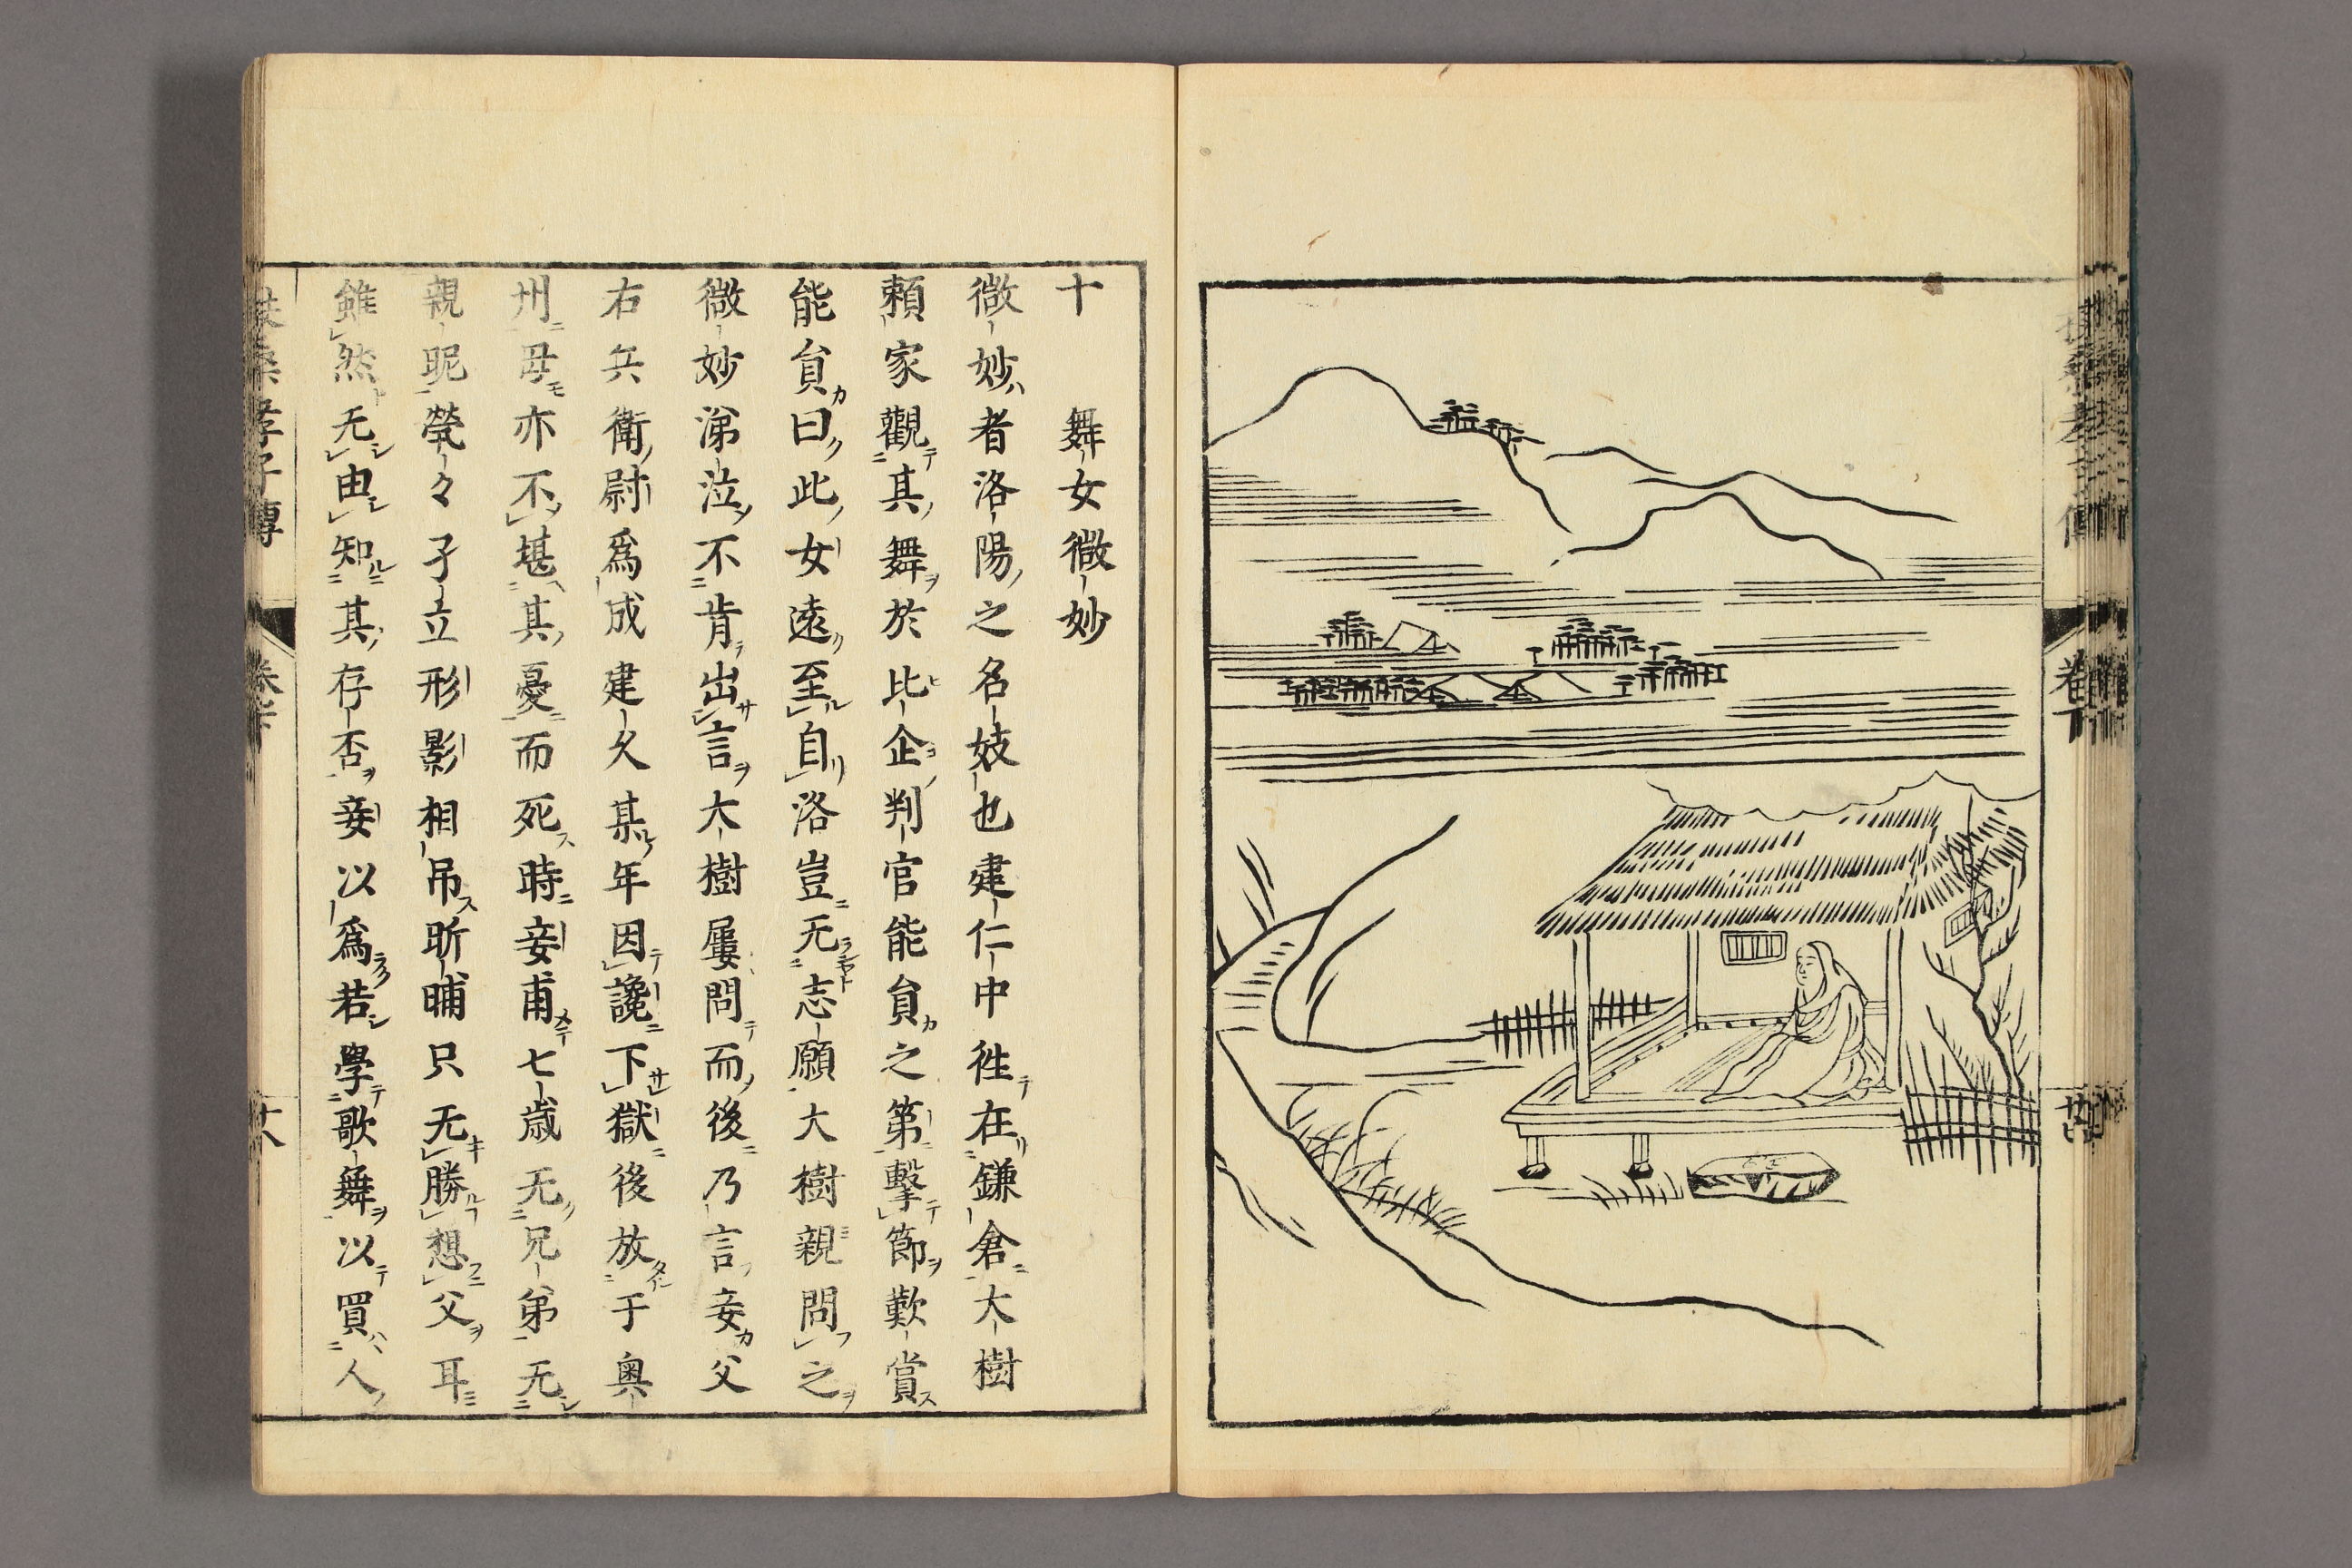 卷下
十 舞女微妙
微妙者洛陽之名妓也建仁中徃在鎌倉大樹
頼家觀其舞於比企判官能員之第擊節歎賞
能員曰此女遠至自洛豈无志願大樹親問之
微妙涕泣不肯出言大樹屢問而後乃言妾父
右兵衛尉爲成建久某年因讒下獄後放于奥
州母亦不堪其憂而死時妾甫七歳无兄弟无
親昵煢々孑立形影相吊昕晡只无勝想父耳
雖然无由知其存否妾以爲若學歌舞以買人
扶桑孝子傳